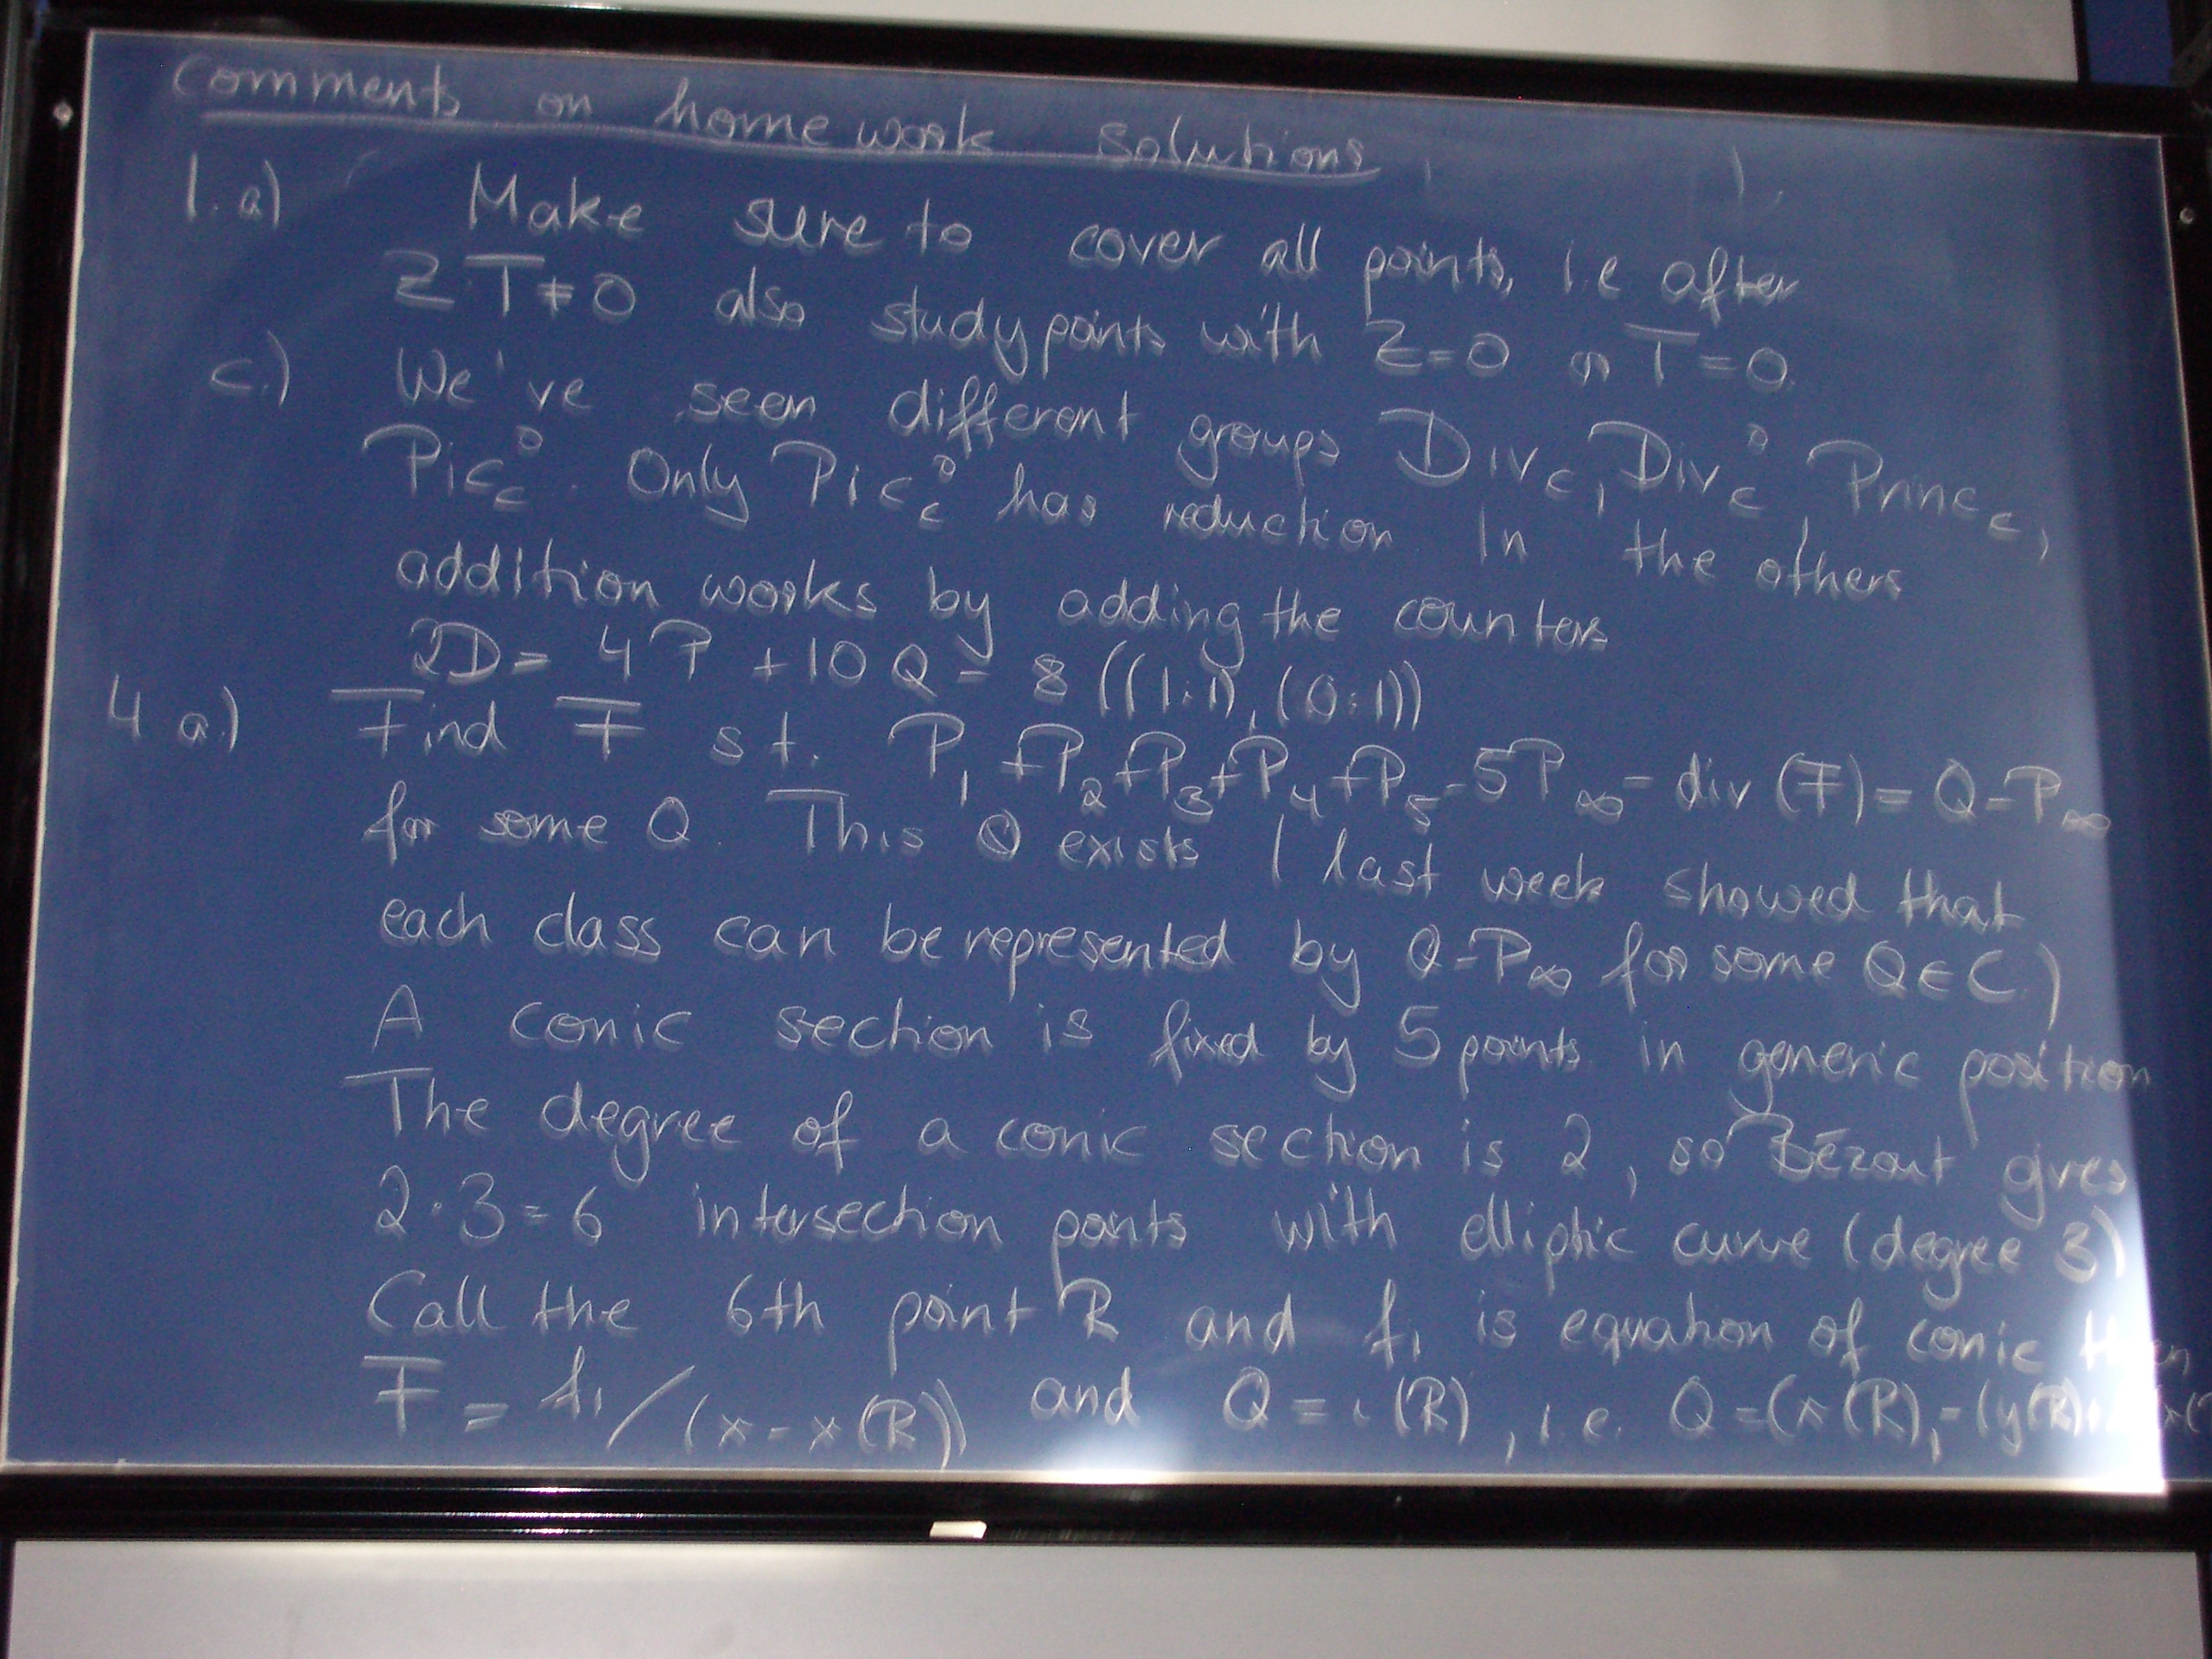 Comments on homework solutions
1. a) Make sure to cover all points, i.e after
Z·T≠0 also study points with Z=0 or T=0.
c.) We've seen different groups Div_C, Div_C^0, Princ_C,
Pic_C^0. Only Pic_C^0 has reduction In the others
addition works by adding the counters
2D = 4P + 10Q - 8((1:1),(0:1))
4 a.) Find F s.t. P_1+P_2+P_3+P_4+P_5-5P_∞ - div(F) = Q-P_∞
for some Q. This Q exists (last week showed that
each class can be represented by Q-P_∞ for some Q∈C.)
A conic section is fixed by 5 points in generic position
The degree of a conic section is 2, so Bézout gives
2·3=6 intersection points with elliptic curve (degree 3)
Call the 6th point R and f_1 is equation of conic then
F = f_1/(x-x(R)) and Q = ι(R), i.e. Q=(x(R),-(y(R)